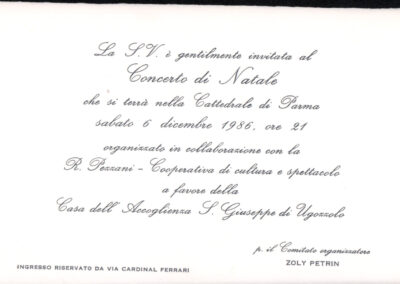 La S.V. è gentilmente invitata al
Concerto di Natale
che si terrà nella Cattedrale di Parma
sabato 6 dicembre 1986, ore 21
organizzato in collaborazione con la
R. Pezzani - Cooperativa di cultura e spettacolo
a favore della
Casa dell'Accoglienza S. Giuseppe di Ugozzolo
p. il Comitato organizzatore
ZOLY PETRIN
INGRESSO RISERVATO DA VIA CARDINAL FERRARI